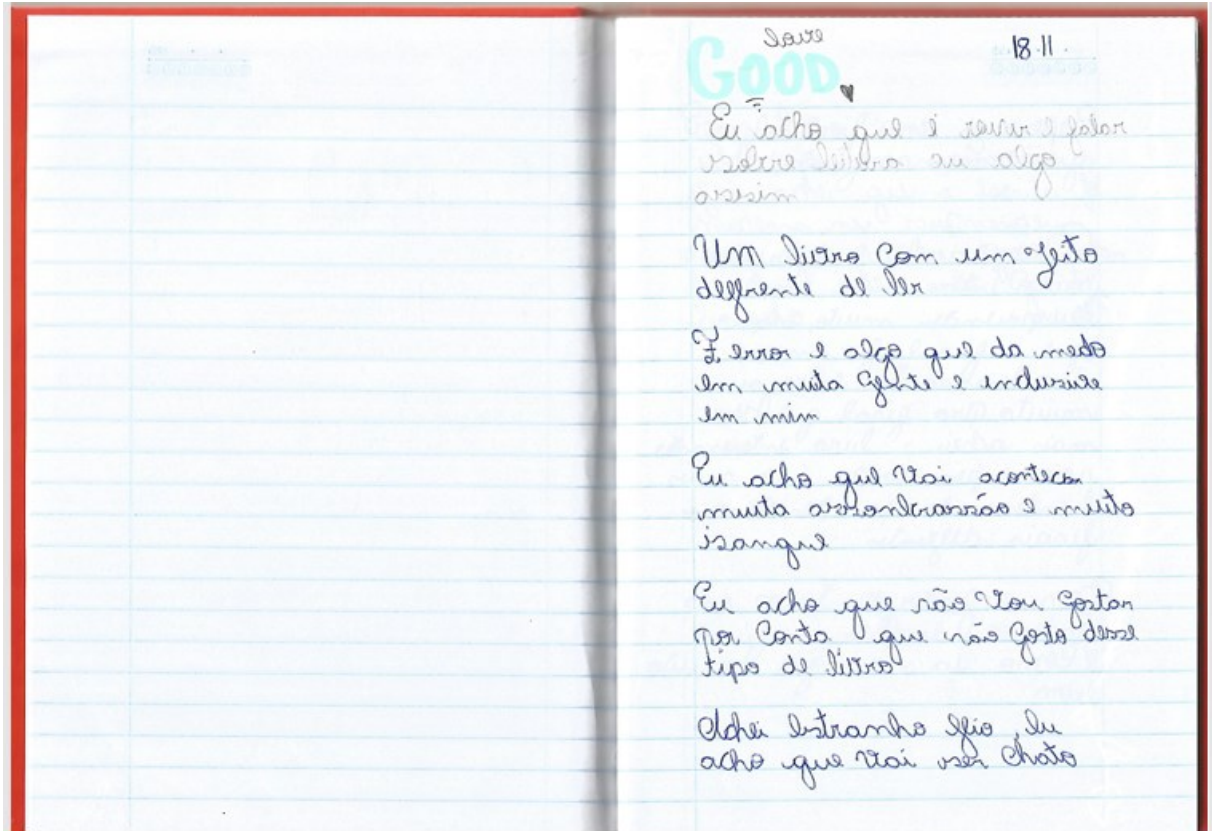 love
GOOD
18.11
Eu acho que é reunir e falar
sobre leitura ou algo
assim
UM livro com um jeito
defrente de ler
Terror e algo que da medo
em muita gente e inclusive
em mim
Eu acho que vai acontecer
muita assonbrassão e muito
sangue
Eu acho que não vou gostar
por conta que não gosto desse
tipo de livro
Achei estranho feio, eu
acho que vai ser chato